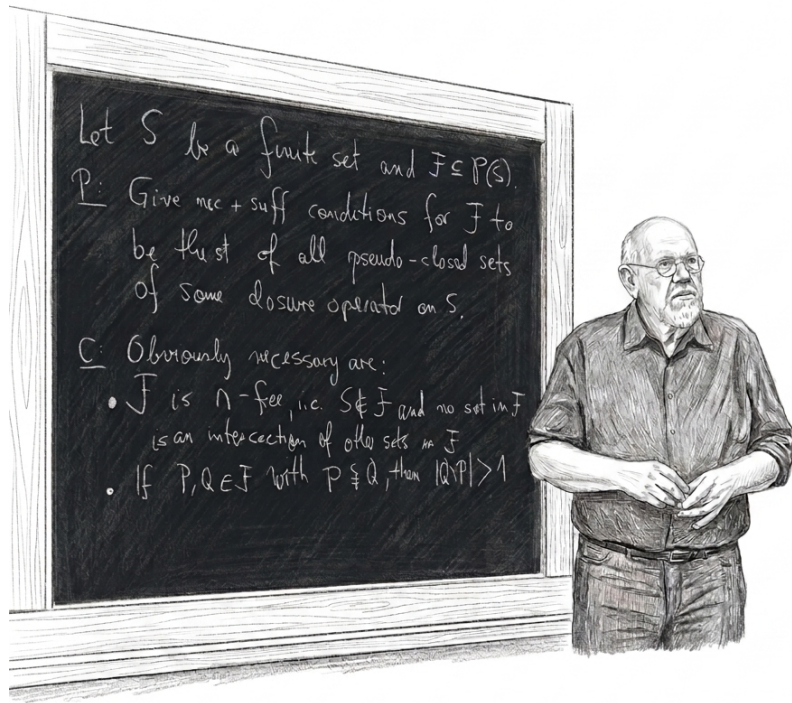 Let S be a finite set and F ⊆ P(S).
P: Give nec + suff conditions for F to
be the st of all pseudo-closed sets
of some closure operator on S.
C: Obviously necessary are:
• F is ∩-free, i.e. S ∉ F and no set in F
is an intersection of other sets in F
• If P, Q ∈ F with P ⊊ Q, then |Q\P| > 1